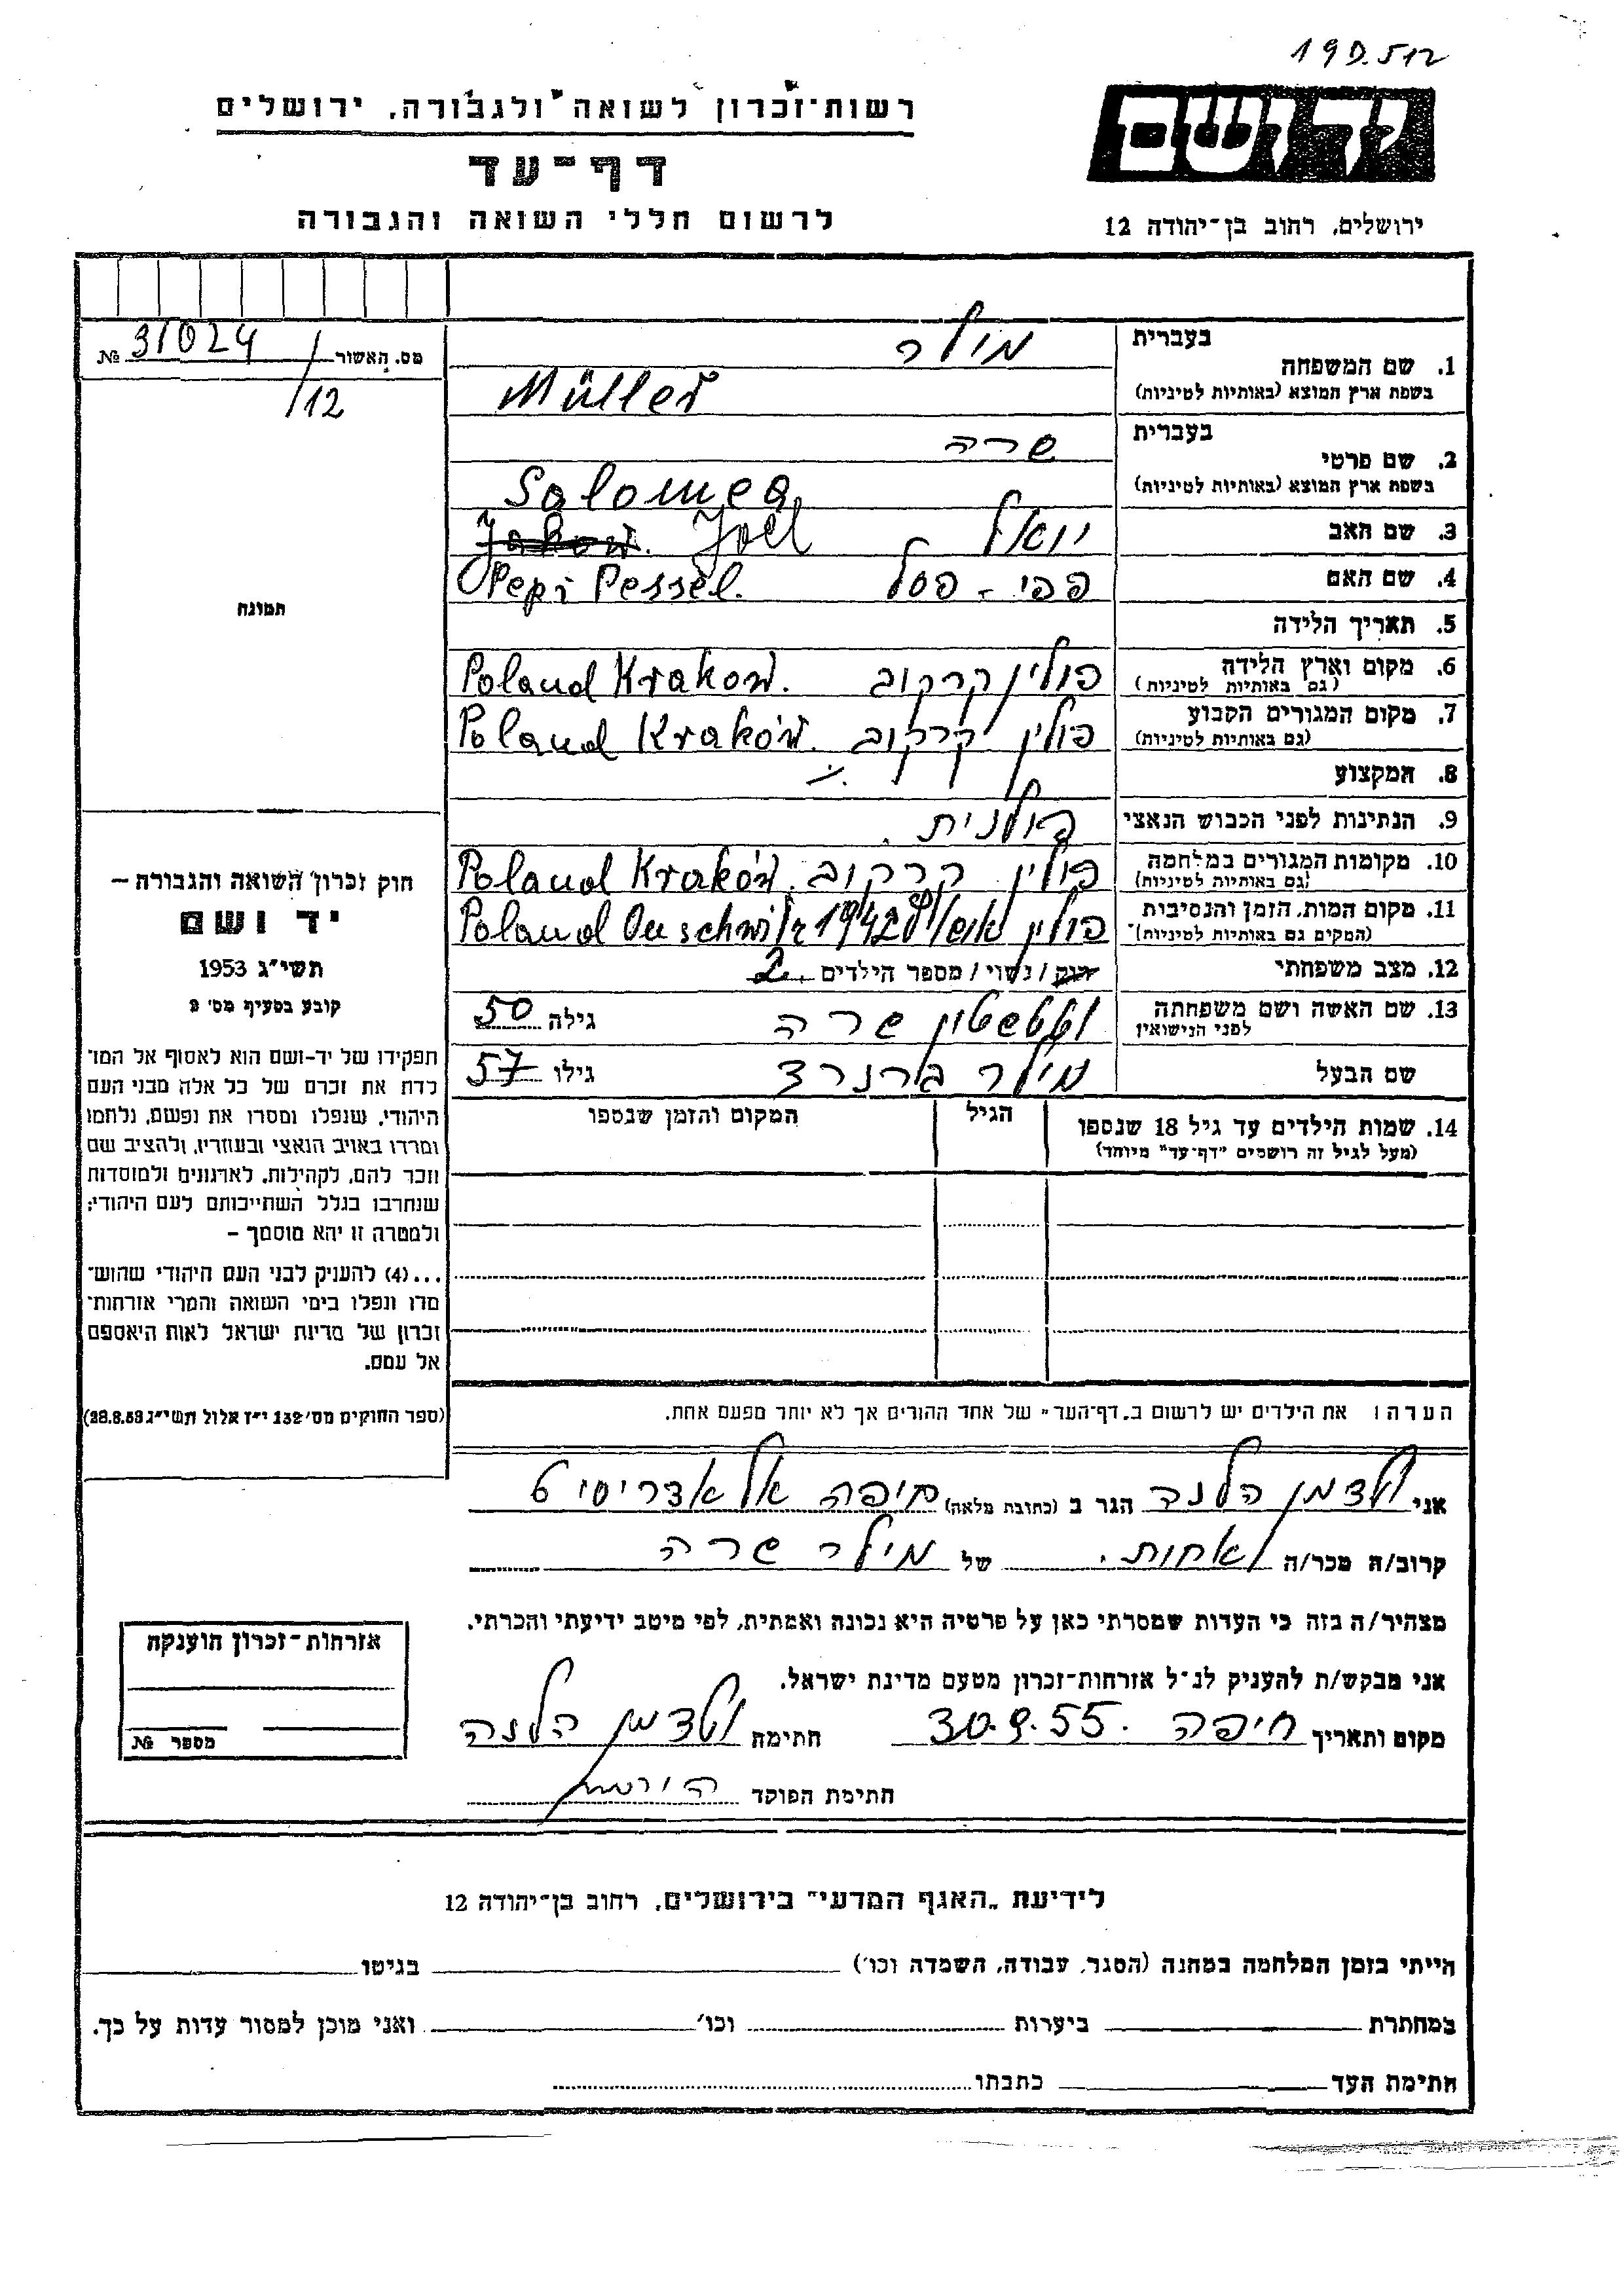 19D.512
רשות־זכרון לשואה ולגבורה, ירושלים
יד ושם
דף־עד
לרשום חללי השואה והגבורה
ירושלים, רחוב בן־יהודה 12
מס. האשור 31024 №
/12
תמונה
חוק זכרון השואה והגבורה –
יד ושם
תשי״ג 1953
קובע בסעיף מס׳ 2
תפקידו של יד-ושם הוא לאסוף אל המו־
לדת את זכרם של כל אלה מבני העם
היהודי, שנפלו ומסרו את נפשם, נלחמו
ומרדו באויב הנאצי ובעוזריו, ולהציב שם
וזכר להם, לקהילות, לארגונים ולמוסדות
שנחרבו בגלל השתייכותם לעם היהודי;
ולמטרה זו יהא מוסמך –
...(4) להעניק לבני העם היהודי שהוש־
מדו ונפלו בימי השואה והמרי אזרחות־
זכרון של מדינת ישראל לאות היאספם
אל עמם.
(ספר החוקים מס׳ 132 י״ז אלול תשי״ג 28.8.53)
בעברית מילר
1. שם המשפחה
בשפת ארץ המוצא (באותיות לטיניות) Müller
בעברית שרה
2. שם פרטי
בשפת ארץ המוצא (באותיות לטיניות) Salomea
3. שם האב יואל Jakow. Joel
4. שם האם פפי - פסל Pepi Pessel.
5. תאריך הלידה
6. מקום וארץ הלידה פולין קרקוב Poland Krakow.
(גם באותיות לטיניות)
7. מקום המגורים הקבוע פולין קרקוב Poland Kraków.
(גם באותיות לטיניות)
8. המקצוע
9. הנתינות לפני הכבוש הנאצי פולנית.
10. מקומות המגורים במלחמה פולין קרקוב. Poland Kraków.
(גם באותיות לטיניות)
11. מקום המות, הזמן והנסיבות פולין Poland Ouschwitz 1942
(המקום גם באותיות לטיניות)
12. מצב משפחתי רווק / נשוי / מספר הילדים 2
13. שם האשה ושם משפחתה שרה גילה 50
לפני הנישואין
שם הבעל מילר ברנרד גילו 57
14. שמות הילדים עד גיל 18 שנספו הגיל המקום והזמן שנספו
(מעל לגיל זה רושמים "דף־עד" מיוחד)
הערה: את הילדים יש לרשום ב„דף־העד" של אחד ההורים אך לא יותר מפעם אחת.
אני ולדמן הלנה הגר ב (כתובת מלאה) חיפה אל אדריסי 6
קרוב/ה מכר/ה אחות. של מילר שרה
מצהיר/ה בזה כי העדות שמסרתי כאן על פרטיה היא נכונה ואמתית, לפי מיטב ידיעתי והכרתי.
אני מבקש/ת להעניק לנ״ל אזרחות־זכרון מטעם מדינת ישראל.
מקום ותאריך חיפה 30.9.55. חתימת ולדמן הלנה
חתימת הפוקד
אזרחות־זכרון הוענקה
מספר №
לידיעת „האגף המדעי" בירושלים, רחוב בן־יהודה 12
הייתי בזמן המלחמה במחנה (הסגר, עבודה, השמדה וכו׳) בגיטו
במחתרת ביערות וכו׳ ואני מוכן למסור עדות על כך.
חתימת העד כתבתו